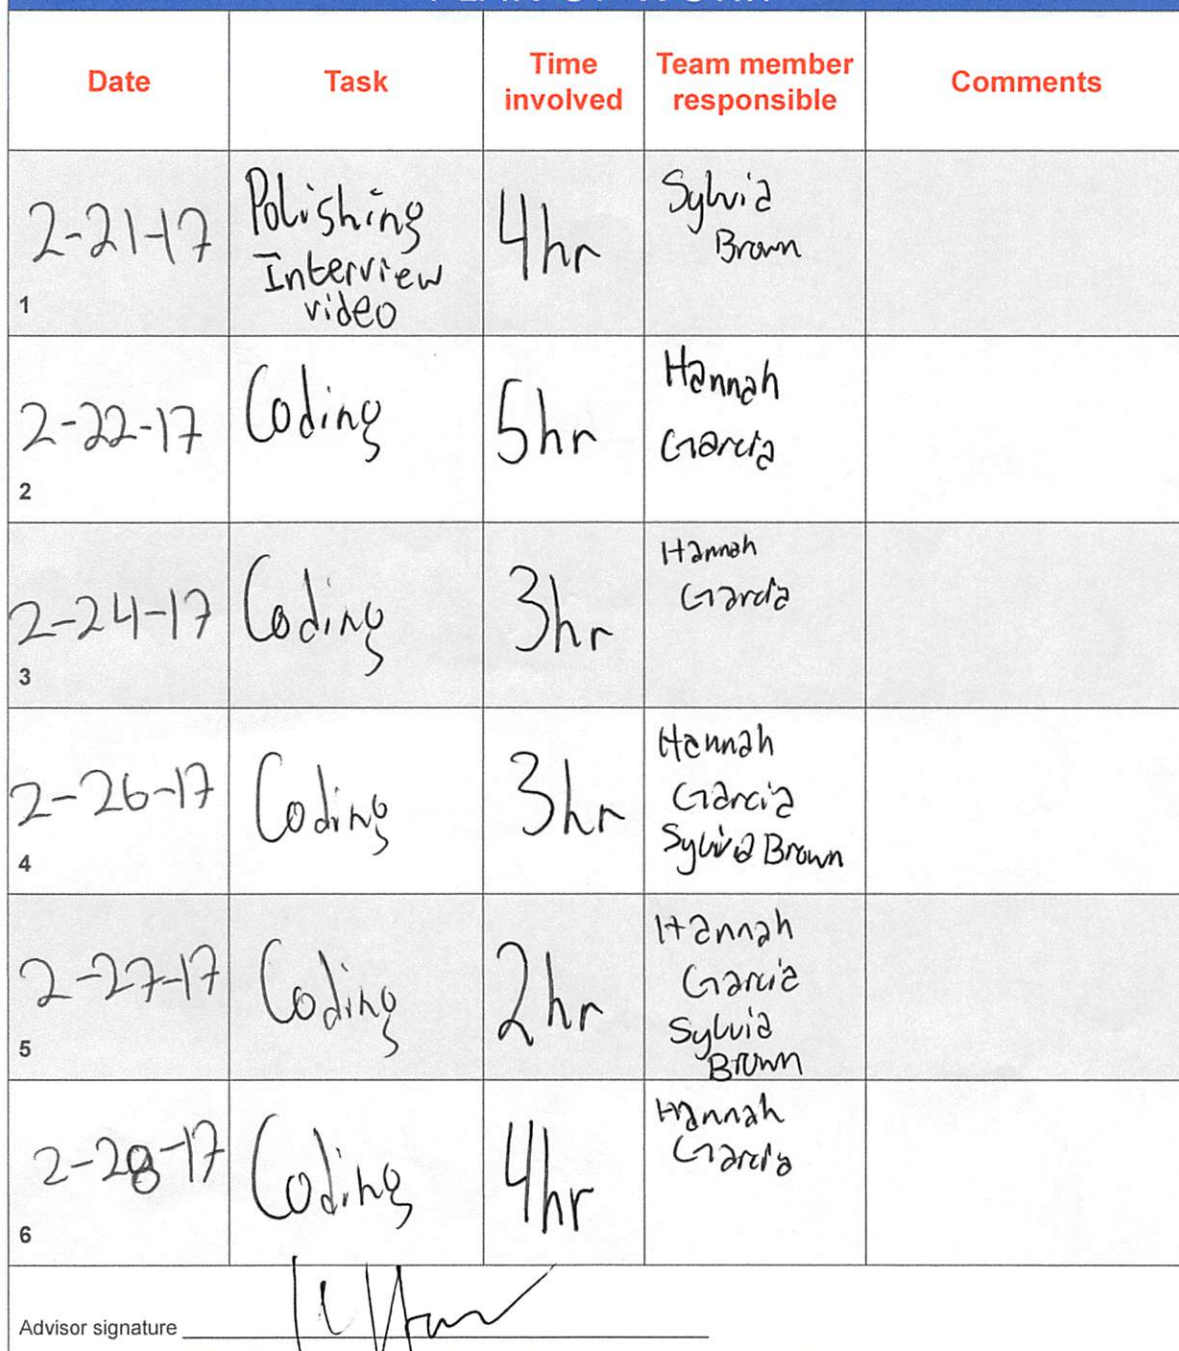 Date
Task
Time
involved
Team member
responsible
Comments
2-21-17
1
Polishing
Interview
video
4hr
Sylvia
Brown
2-22-17
2
Coding
5hr
Hannah
Garcia
2-24-17
3
Coding
3hr
Hannah
Garcia
2-26-17
4
Coding
3hr
Hannah
Garcia
Sylvia Brown
2-27-17
5
Coding
2hr
Hannah
Garcia
Sylvia
Brown
2-28-17
6
Coding
4hr
Hannah
Garcia
Advisor signature